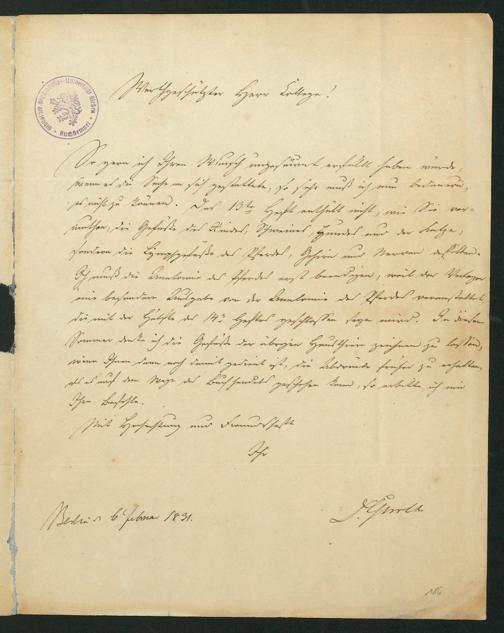 Werthgeschätzter Herr College!
So gern ich Ihren Wunsch ungesäumt erfüllt haben würde,
wenn es die Sache so gestattete, so sehr muß ich nun bedauern,
es nicht zu können. Das 13te Heft enthält nicht, wie Sie ver-
muthen, die Gefäße des Rindes, Schweines, Hundes und der Katze,
sondern die Lymphgefäße des Pferdes, Gehirn und Nerven desselben.
Ich muß die Anatomie des Pferdes erst beendigen, weil der Verleger
eine besondere Ausgabe von der Anatomie des Pferdes veranstaltet,
die mit der Hälfte des 14t Heftes geschlossen seyn wird. In diesem
Sommer denke ich die Gefäße der übrigen Hausthiere zeichnen zu lassen,
wenn Ihnen dann noch damit gedient ist, die Abdrücke früher zu erhalten,
als es auf dem Wege des Buchhandels geschehen kann, so erbitte ich mir
Ihre Befehle.
Mit Hochachtung und Freundschaft
Ihr
Berlin 6 Februar 1831.
Dr Gurlt